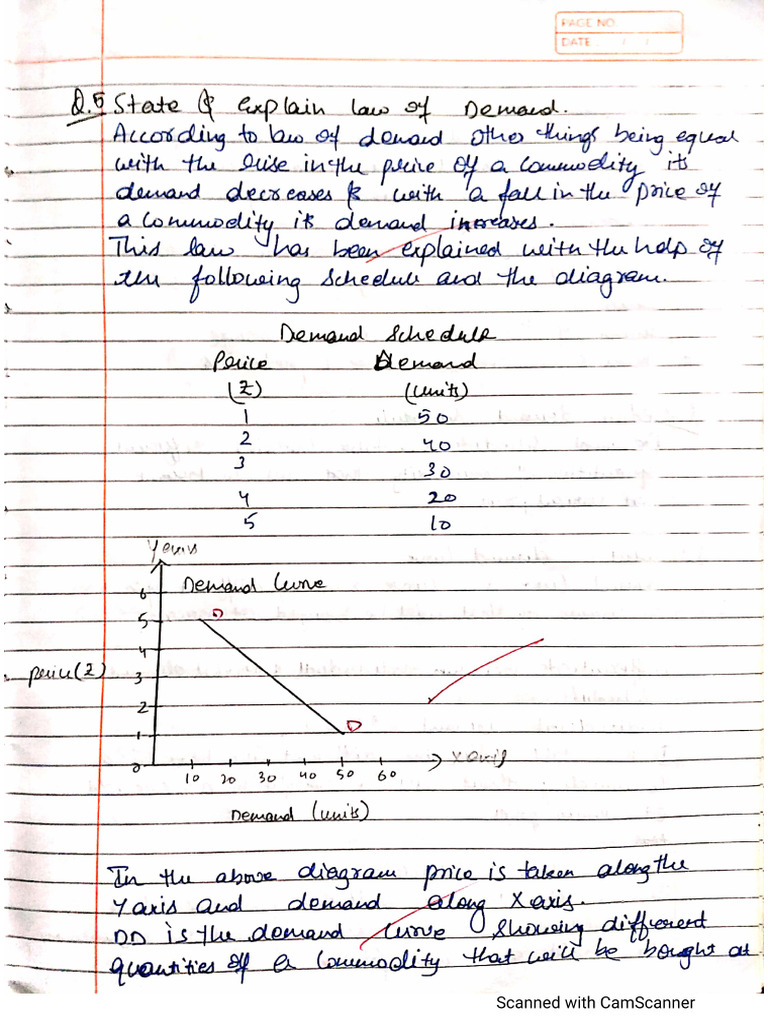 PAGE NO.
DATE / /
Q.5 State & explain law of Demand.
According to law of demand other things being equal
with the rise in the price of a commodity its
demand decreases & with a fall in the price of
a commodity its demand increases.
This law has been explained with the help of
the following schedule and the diagram.
Demand Schedule
Price Demand
(₹) (units)
1 50
2 40
3 30
4 20
5 10
Y axis
Demand Curve
6
5 D
4
price (₹) 3
2
1 D
0 10 20 30 40 50 60 X axis
Demand (units)
In the above diagram price is taken along the
Y axis and demand along X axis.
DD is the demand curve showing different
quantities of a commodity that will be bought at
Scanned with CamScanner